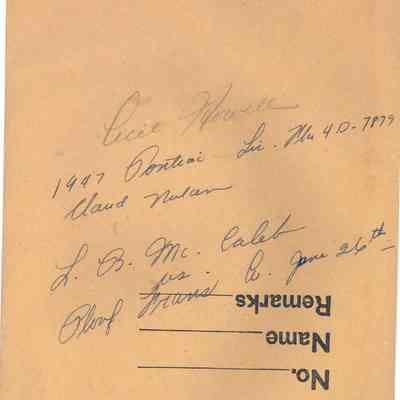 Cecil Howell
1947 Pontiac - Lic. Fla 4D-7879
Claud Nolan
L. B. Mc. Caleb
vs.
Plouf Trans Co. June 26th
Remarks
Name
No.